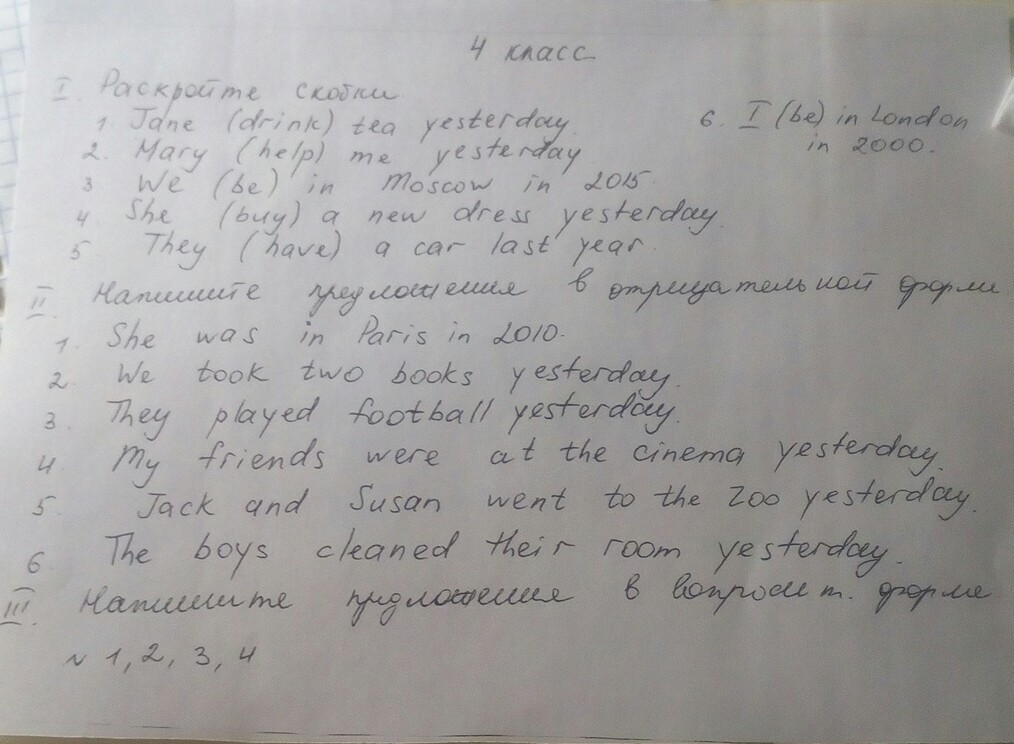 4 класс
I. Раскройте скобки
1. Jane (drink) tea yesterday.
2. Mary (help) me yesterday
3 We (be) in Moscow in 2015.
4. She (buy) a new dress yesterday.
5 They (have) a car last year.
6. I (be) in London
in 2000.
II. Напишите предложения в отрицательной форме
1. She was in Paris in 2010.
2. We took two books yesterday.
3. They played football yesterday.
4. My friends were at the cinema yesterday.
5. Jack and Susan went to the zoo yesterday.
6. The boys cleaned their room yesterday.
III. Напишите предложения в вопросит. форме
N 1, 2, 3, 4